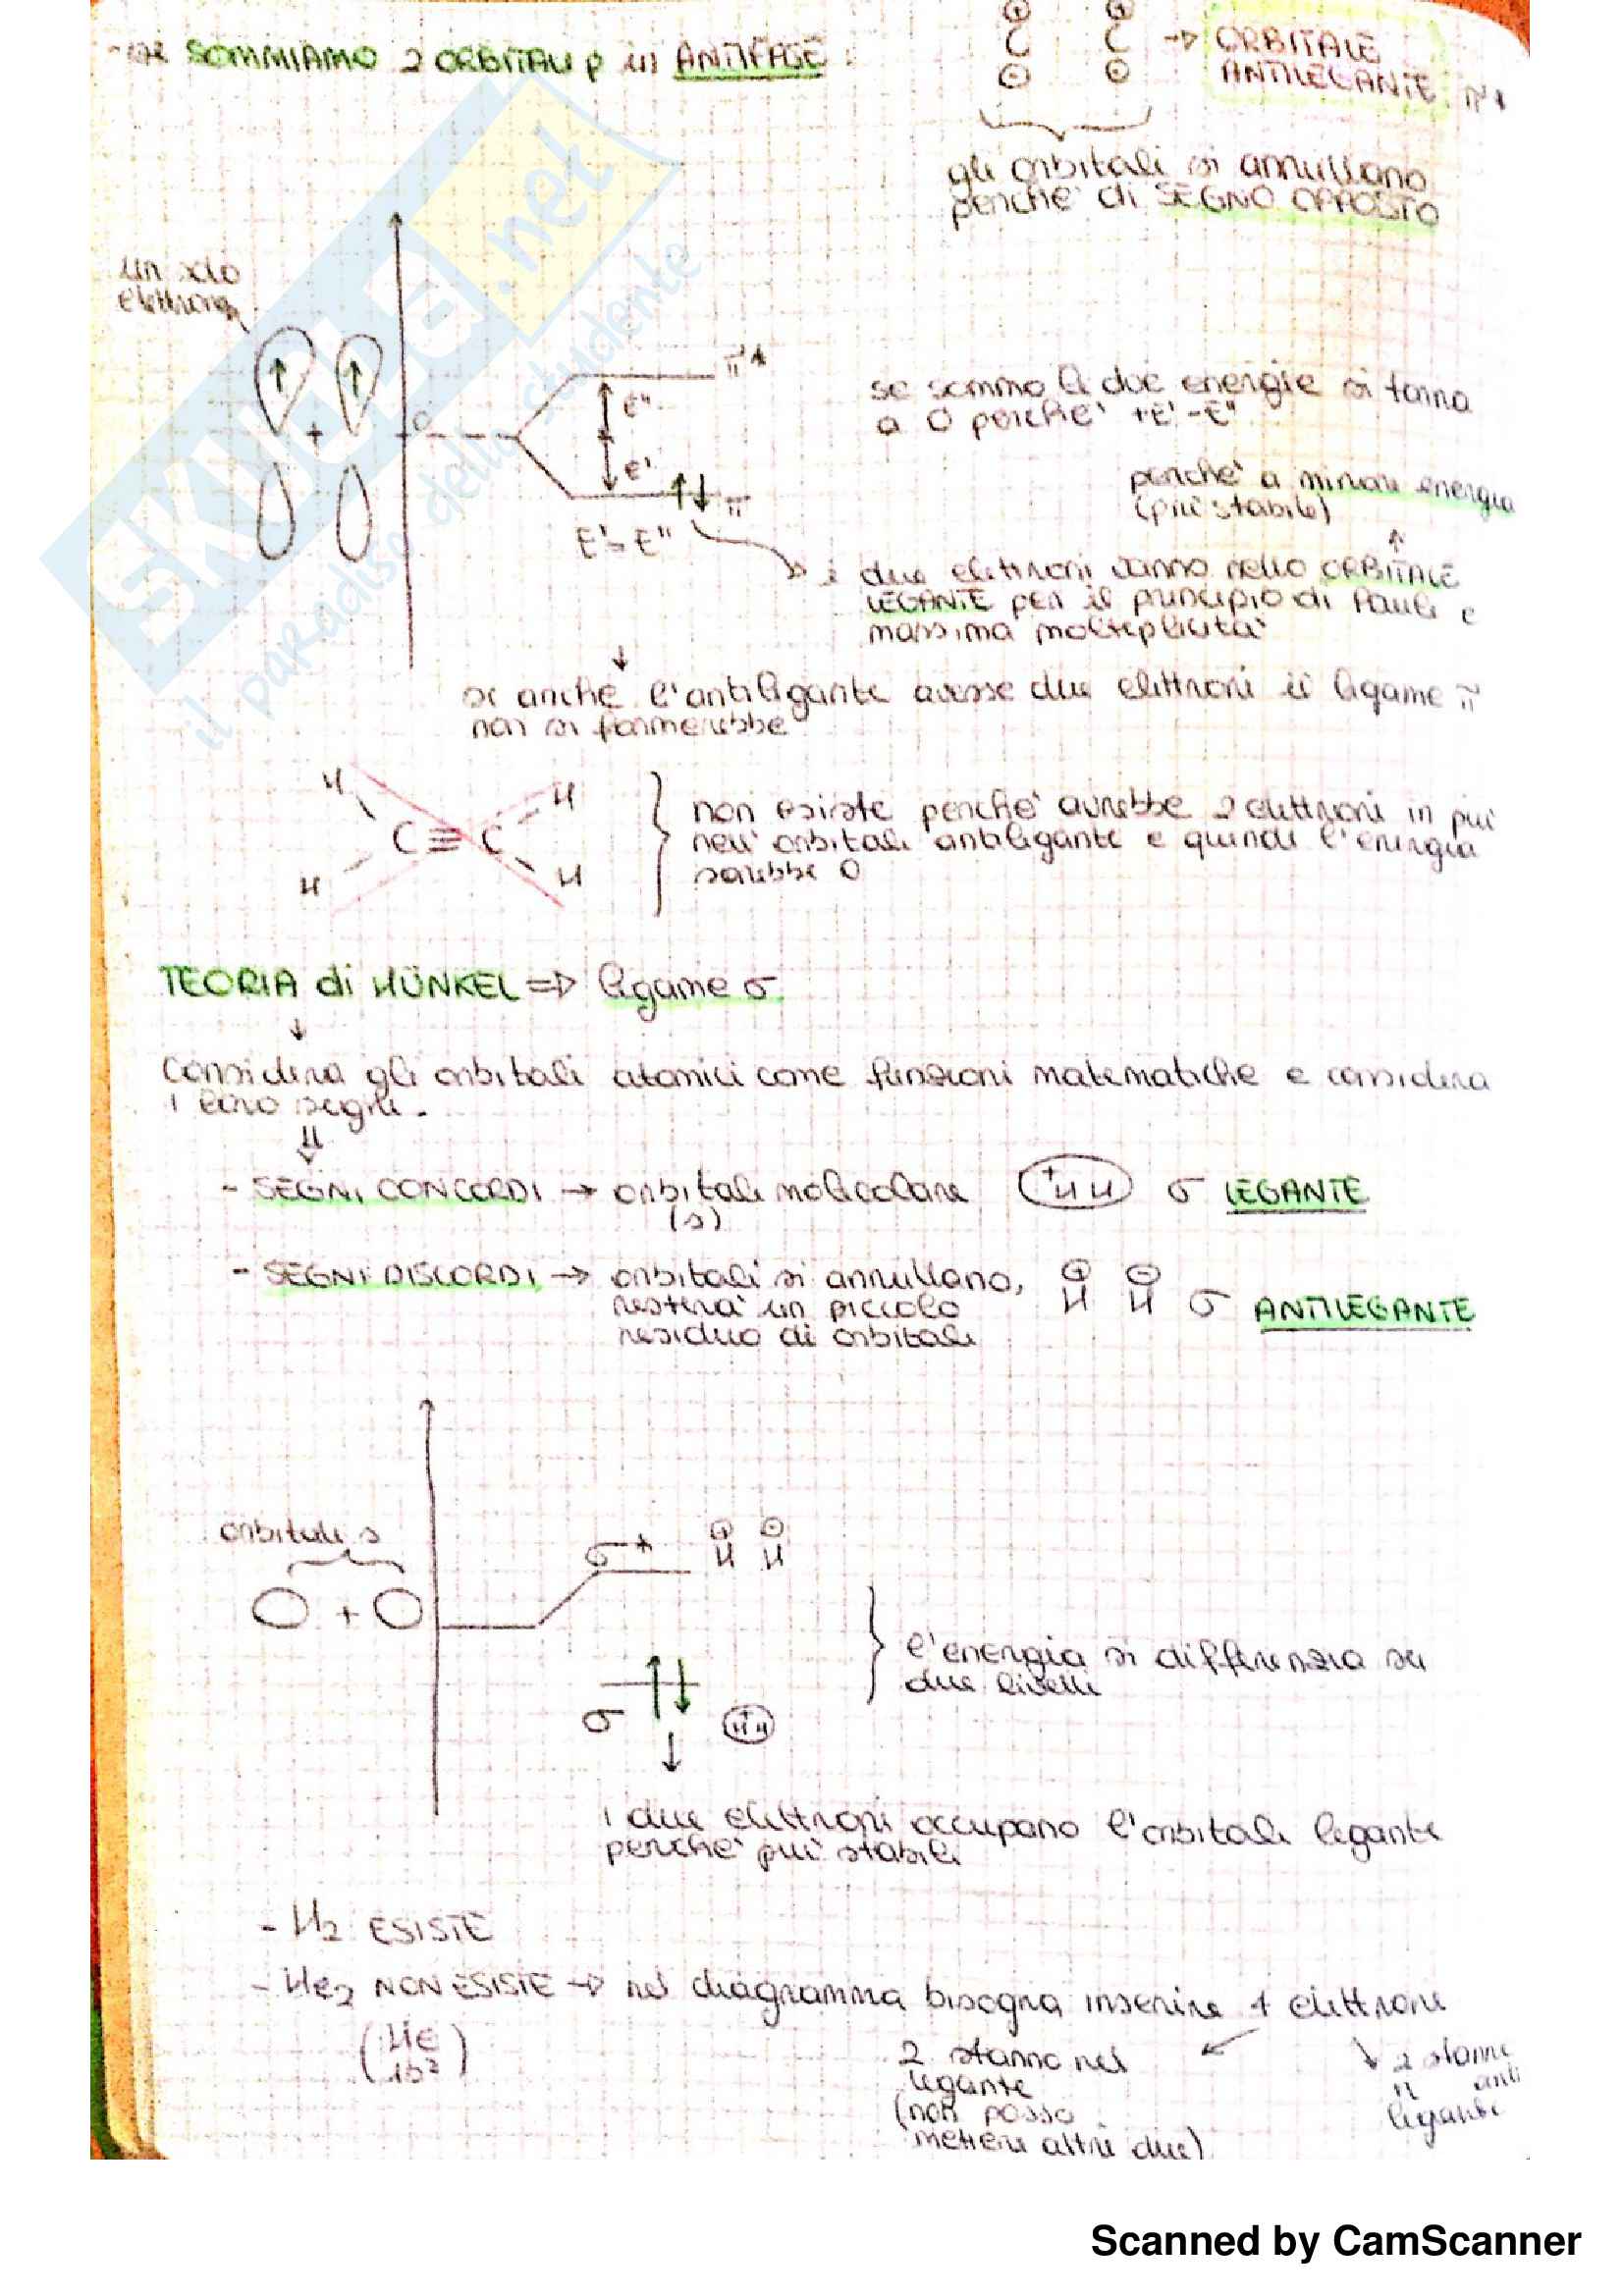 - se SOMMIAMO 2 ORBITALI p in ANTIFASE :
⊕ ⊕
C C → ORBITALE
⊖ ⊖ ANTILEGANTE π*
gli orbitali si annullano
perché di SEGNO OPPOSTO
un solo
elettrone
+
0
π*
E"
E'
π
E' = E"
se sommo le due energie si torna
a 0 perché +E' -E"
perché a minore energia
(più stabile)
i due elettroni vanno nello ORBITALE
LEGANTE per il principio di Pauli e
massima molteplicità
↓
se anche l'antilegante avesse due elettroni il legame π
non si formerebbe
H H
C ≡ C
H H
non esiste perché avrebbe 2 elettroni in più
nell'orbitale antilegante e quindi l'energia
sarebbe 0
TEORIA di HÜNKEL => legame σ
↓
Considera gli orbitali atomici come funzioni matematiche e considera
i loro segni.
⇓
- SEGNI CONCORDI → orbitale molecolare +H H σ LEGANTE
(s)
- SEGNI DISCORDI → orbitali si annullano, ⊕ ⊖
resterà un piccolo H H σ ANTILEGANTE
residuo di orbitale
orbitale s
+
σ*
⊕ ⊖
H H
l'energia si differenzia su
due livelli
σ
+
H H
↓
i due elettroni occupano l'orbitale legante
perché più stabile
- H2 ESISTE
- He2 NON ESISTE → nel diagramma bisogna inserire 4 elettroni
(He
1s²)
2 stanno nel
legante
(non posso
mettere altri due)
2 stanno
n anti
legante
SKUOLA.net
il paradiso dello studente
Scanned by CamScanner